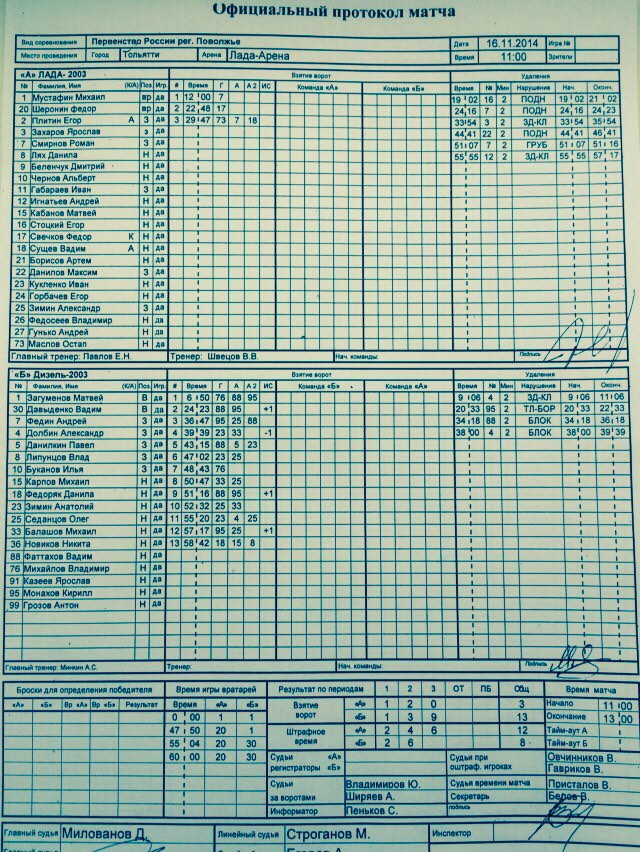 Официальный протокол матча
Вид соревнования Первенство России рег. Поволжье Дата 16.11.2014 Игра №
Место проведения Город Тольятти Арена Лада-Арена Время 11:00 Зрители
«А» ЛАДА- 2003 Взятие ворот Удаления
№ Фамилия, Имя (К/А) Поз Игр # Время Г А А 2 ИС Команда «А» Команда «Б» Время № Мин Нарушение Нач. Оконч.
1 Мустафин Михаил вр да 1 12 00 7 19 02 16 2 ПОДН 19 02 21 02
20 Шеронин Федор вр да 2 22 48 17 24 16 7 2 ПОДН 24 16 24 23
2 Плитин Егор А З да 3 29 47 73 7 18 33 54 3 2 ЗД-КЛ 33 54 35 54
3 Захаров Ярослав з да 44 41 22 2 ПОДН 44 41 46 41
7 Смирнов Роман З да 51 07 7 2 ГРУБ 51 07 51 16
8 Лях Данила Н да 55 55 12 2 ЗД-КЛ 55 55 57 17
9 Беленчук Дмитрий Н да
10 Чернов Альберт Н да
11 Габараев Иван З да
12 Игнатьев Андрей Н да
15 Кабанов Матвей Н да
16 Стоцкий Егор Н да
17 Свечков Федор К Н да
18 Сущев Вадим А Н да
21 Борисов Артем Н да
22 Данилов Максим З да
23 Кукленко Иван Н да
24 Горбачев Егор Н да
25 Зимин Александр З да
26 Федосеев Владимир Н да
27 Гунько Андрей Н да
73 Маслов Остап Н да
Главный тренер: Павлов Е.Н. Тренер: Швецов В.В. Нач. команды: Подпись
«Б» Дизель-2003 Взятие ворот Удаления
№ Фамилия, Имя (К/А) Поз Игр # Время Г А А ИС Команда «Б» Команда «А» Время № Мин Нарушение Нач. Оконч.
1 Загуменов Матвей В да 1 6 50 76 88 95 9 06 4 2 ЗД-КЛ 9 06 11 06
30 Давыденко Вадим В да 2 24 23 88 95 +1 20 33 95 2 ТЛ-БОР 20 33 22 33
7 Федин Андрей З да 3 36 47 95 25 88 34 18 88 2 БЛОК 34 18 36 18
4 Долбин Александр З да 4 39 39 23 33 -1 38 00 4 2 БЛОК 38 00 39 39
5 Данилкин Павел З да 5 43 15 88 5 23
8 Липунцов Влад З да 6 47 02 23 25
10 Буканов Илья З да 7 48 43 76
15 Карпов Михаил Н да 8 50 47 33 25
18 Федоряк Данила Н да 9 51 16 88 95 +1
23 Зимин Анатолий Н да 10 52 32 25 33
25 Седанцов Олег Н да 11 55 20 23 4 25
33 Балашов Михаил Н да 12 57 17 95 25 +1
36 Новиков Никита Н да 13 58 42 18 15 8
88 Фаттахов Вадим Н да
76 Михайлов Владимир Н да
91 Казеев Ярослав Н да
95 Монахов Кирилл Н да
99 Грозов Антон Н да
Главный тренер: Минкин А.С. Тренер: Нач. команды: Подпись
Броски для определения победителя Время игры вратарей Результат по периодам 1 2 3 ОТ ПБ Общ Время матча
«А» «Б» Вр «А» Вр «Б» Результат Время «А» «Б» Взятие ворот «А» 1 2 0 3 Начало 11 00
0 00 1 1 «Б» 1 3 9 13 Окончание 13 00
47 50 20 1 Штрафное время «А» 2 4 6 12 Тайм-аут А
55 04 20 30 «Б» 2 6 8 Тайм-аут Б
60 00 20 30 Судьи «А» регистраторы «Б» Судьи при оштраф. игроках Овчинников В.
Гавриков В.
Судьи за воротами Владимиров Ю. Судья времени матча Присталов В.
Ширяев А. Секретарь Белов В.
Информатор Пеньков С. подпись
Главный судья Милованов Д. Линейный судья Строганов М. Инспектор